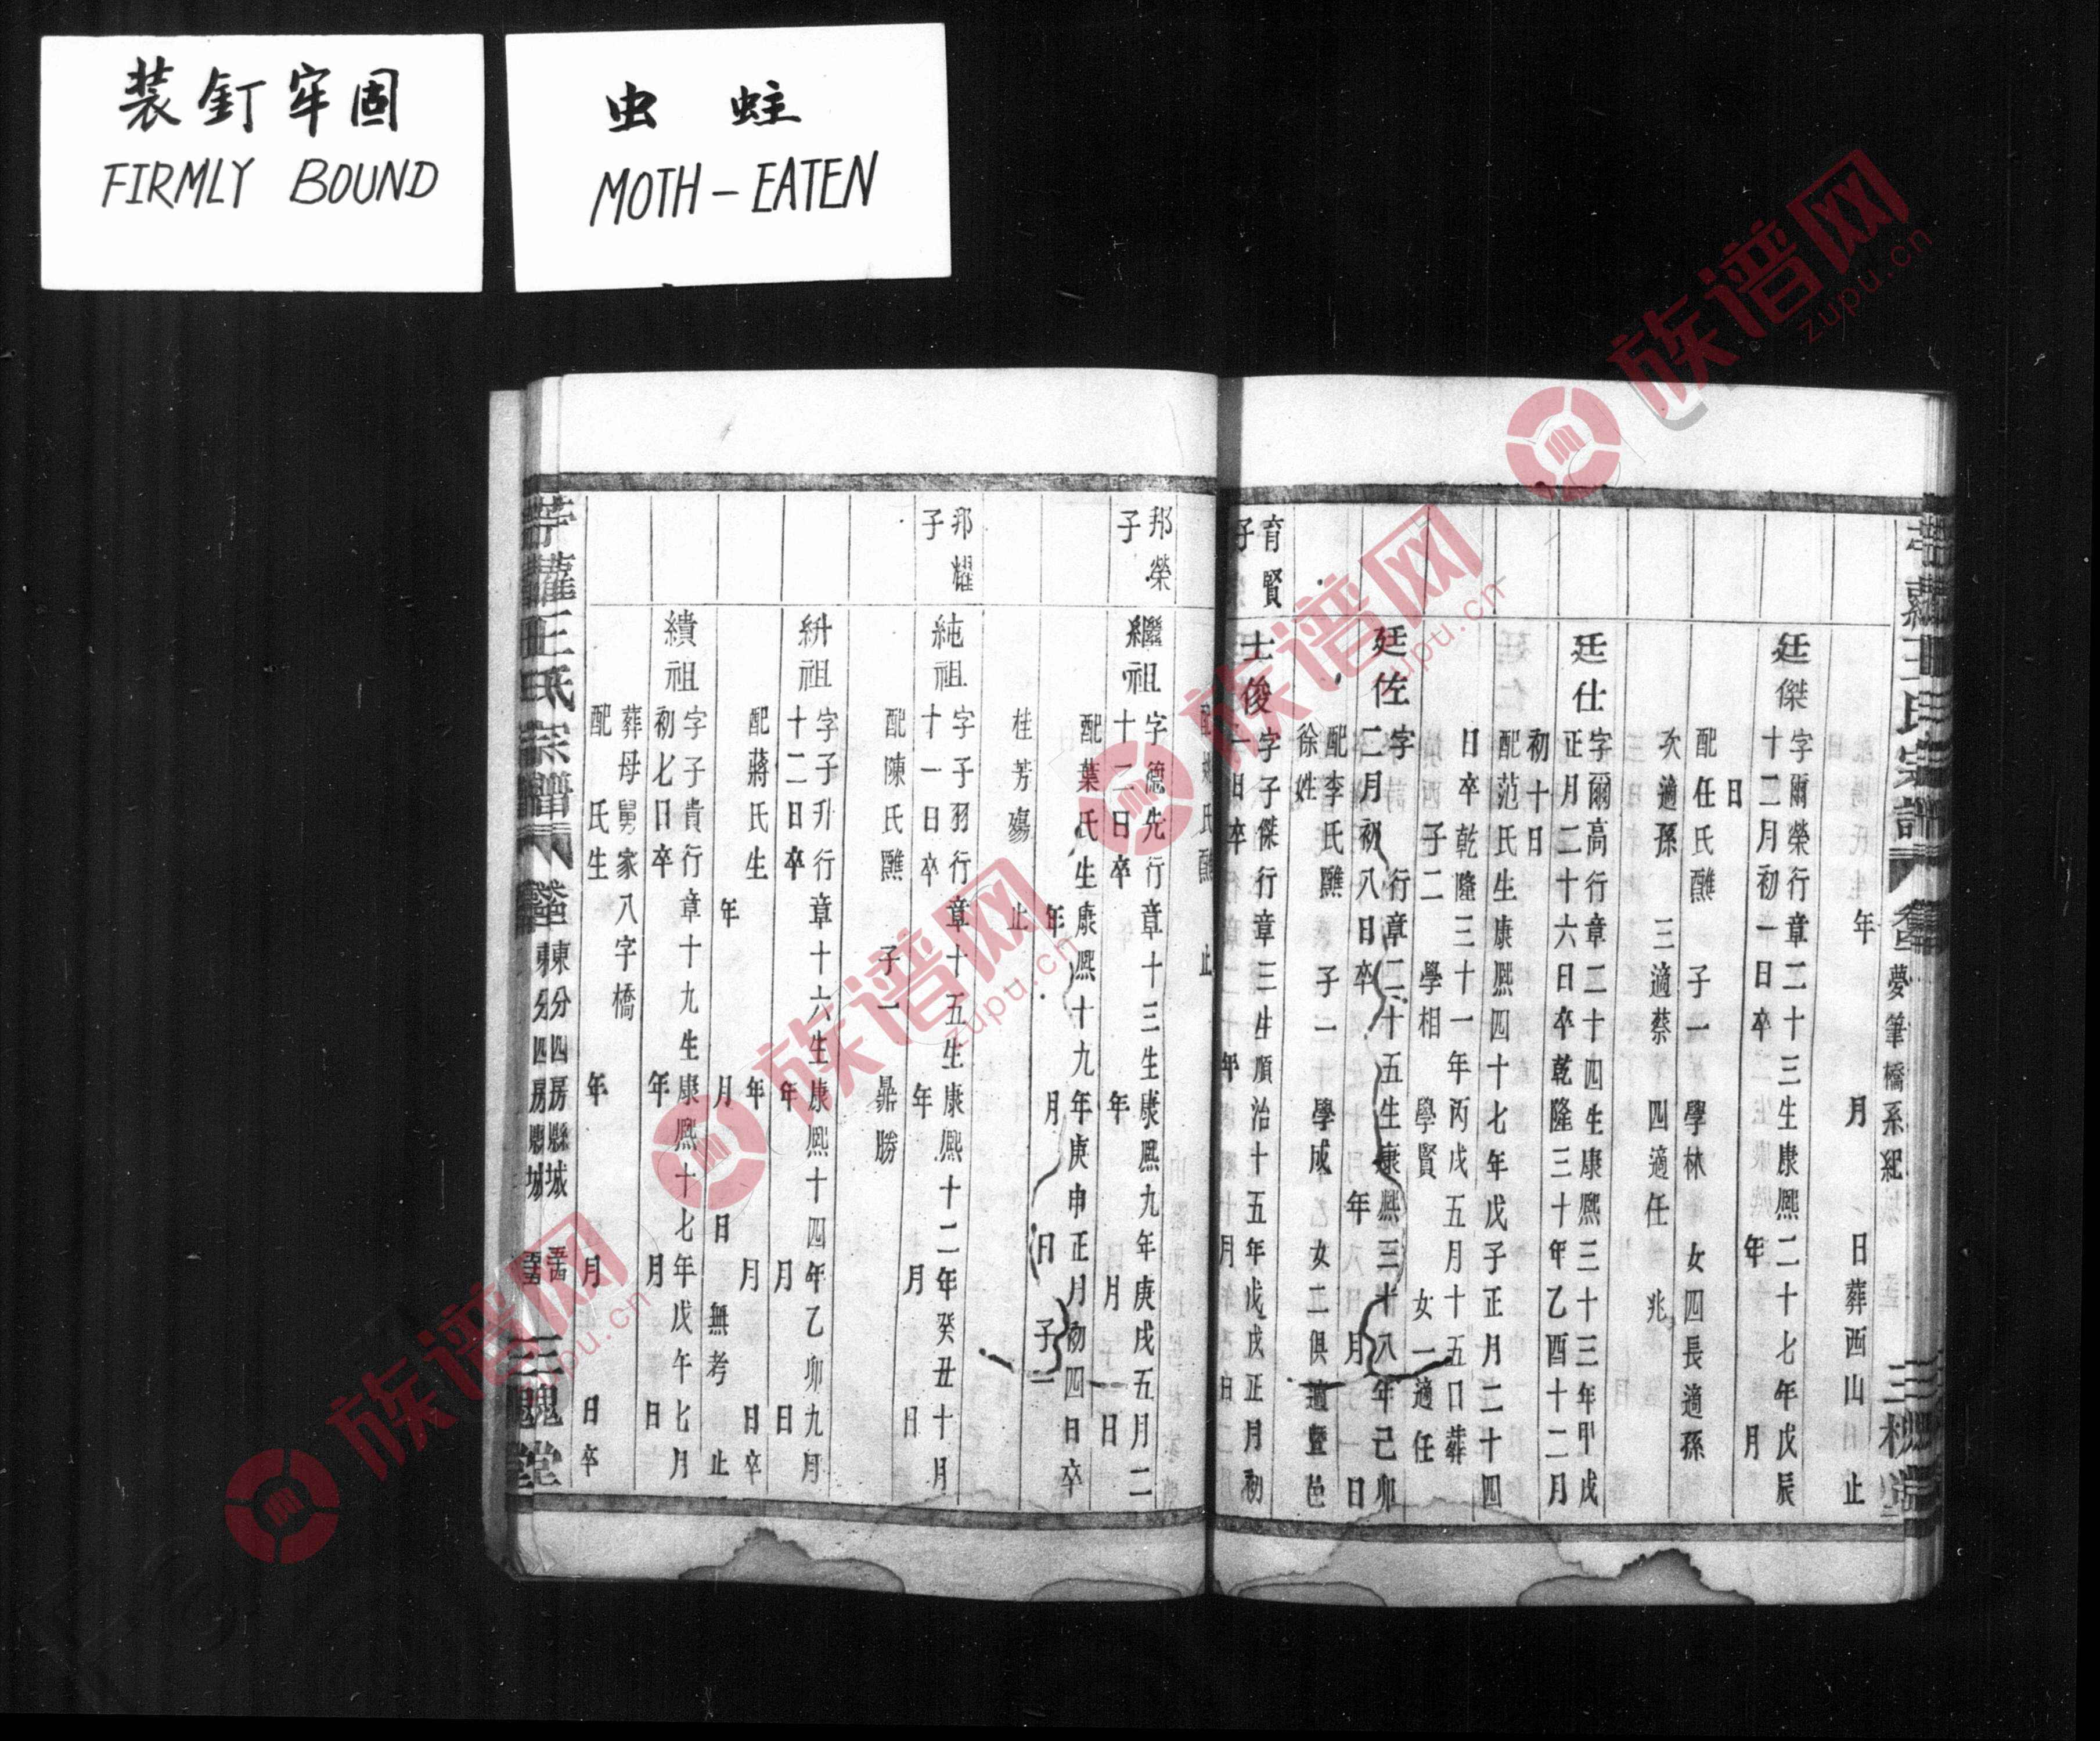 装釘牢固
FIRMLY BOUND
虫蛀
MOTH-EATEN
王氏宗譜
夢筆橋系紀
年 月 日葬西山 止
廷傑
字爾榮行章二十三生康熙二十七年戊辰
十二月初一日卒 年 月
日
配任氏醮 子一 學林 女四長適孫
次適孫 三適蔡 四適任 兆
廷仕
字爾高行章二十四生康熙三十三年甲戌
正月二十六日卒乾隆三十年乙酉十二月
初十日
配范氏生康熙四十七年戊子正月二十四
日卒乾隆三十一年丙戌五月十五日葬
子二 學相 學賢 女一適任
廷佐
字 行章二十五生康熙三十八年己卯
二月初八日卒 年 月 日
配李氏醮 子一 學成 女二俱適暨邑
徐姓
育賢子
士俊
字子傑行章三生順治十五年戊戌正月初
一日卒 年 月 日
氏醮 止
邦榮子
繼祖
字德先行章十三生康熙九年庚戌五月二
十二日卒 年 月 日
配葉氏生康熙十九年庚申正月初四日卒
年 月 日 子一
桂芳殤 止
邦耀子
純祖
字子羽行章十五生康熙十二年癸丑十月
十一日卒 年 月 日
配陳氏醮 子一 鼎勝
紒祖
字子升行章十六生康熙十四年乙卯九月
十二日卒 年 月 日
配蔣氏生 年 月 日卒
年 月 日無考 止
績祖
字子貴行章十九生康熙十七年戊午七月
初七日卒 年 月 日
葬母舅家八字橋
配 氏生 年 月 日卒
王氏宗譜
東分四房縣城
三槐堂
族谱网
zupu.cn
族谱网
zupu.cn
族谱网
zupu.cn
族谱网
zupu.cn